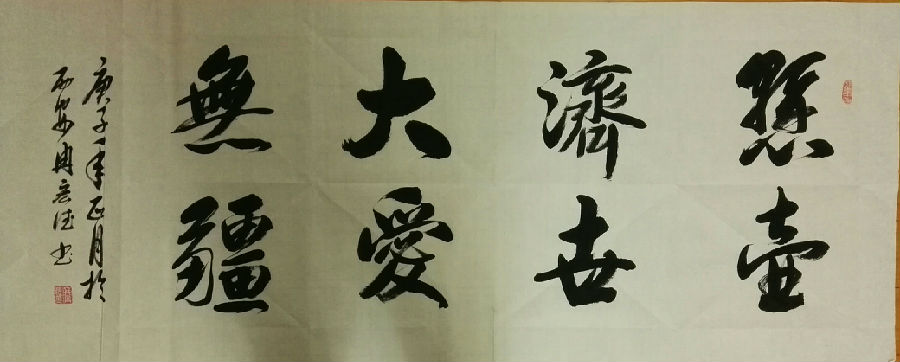 懸壺
濟世
大愛
無疆
庚子年正月於
西安周宏法書